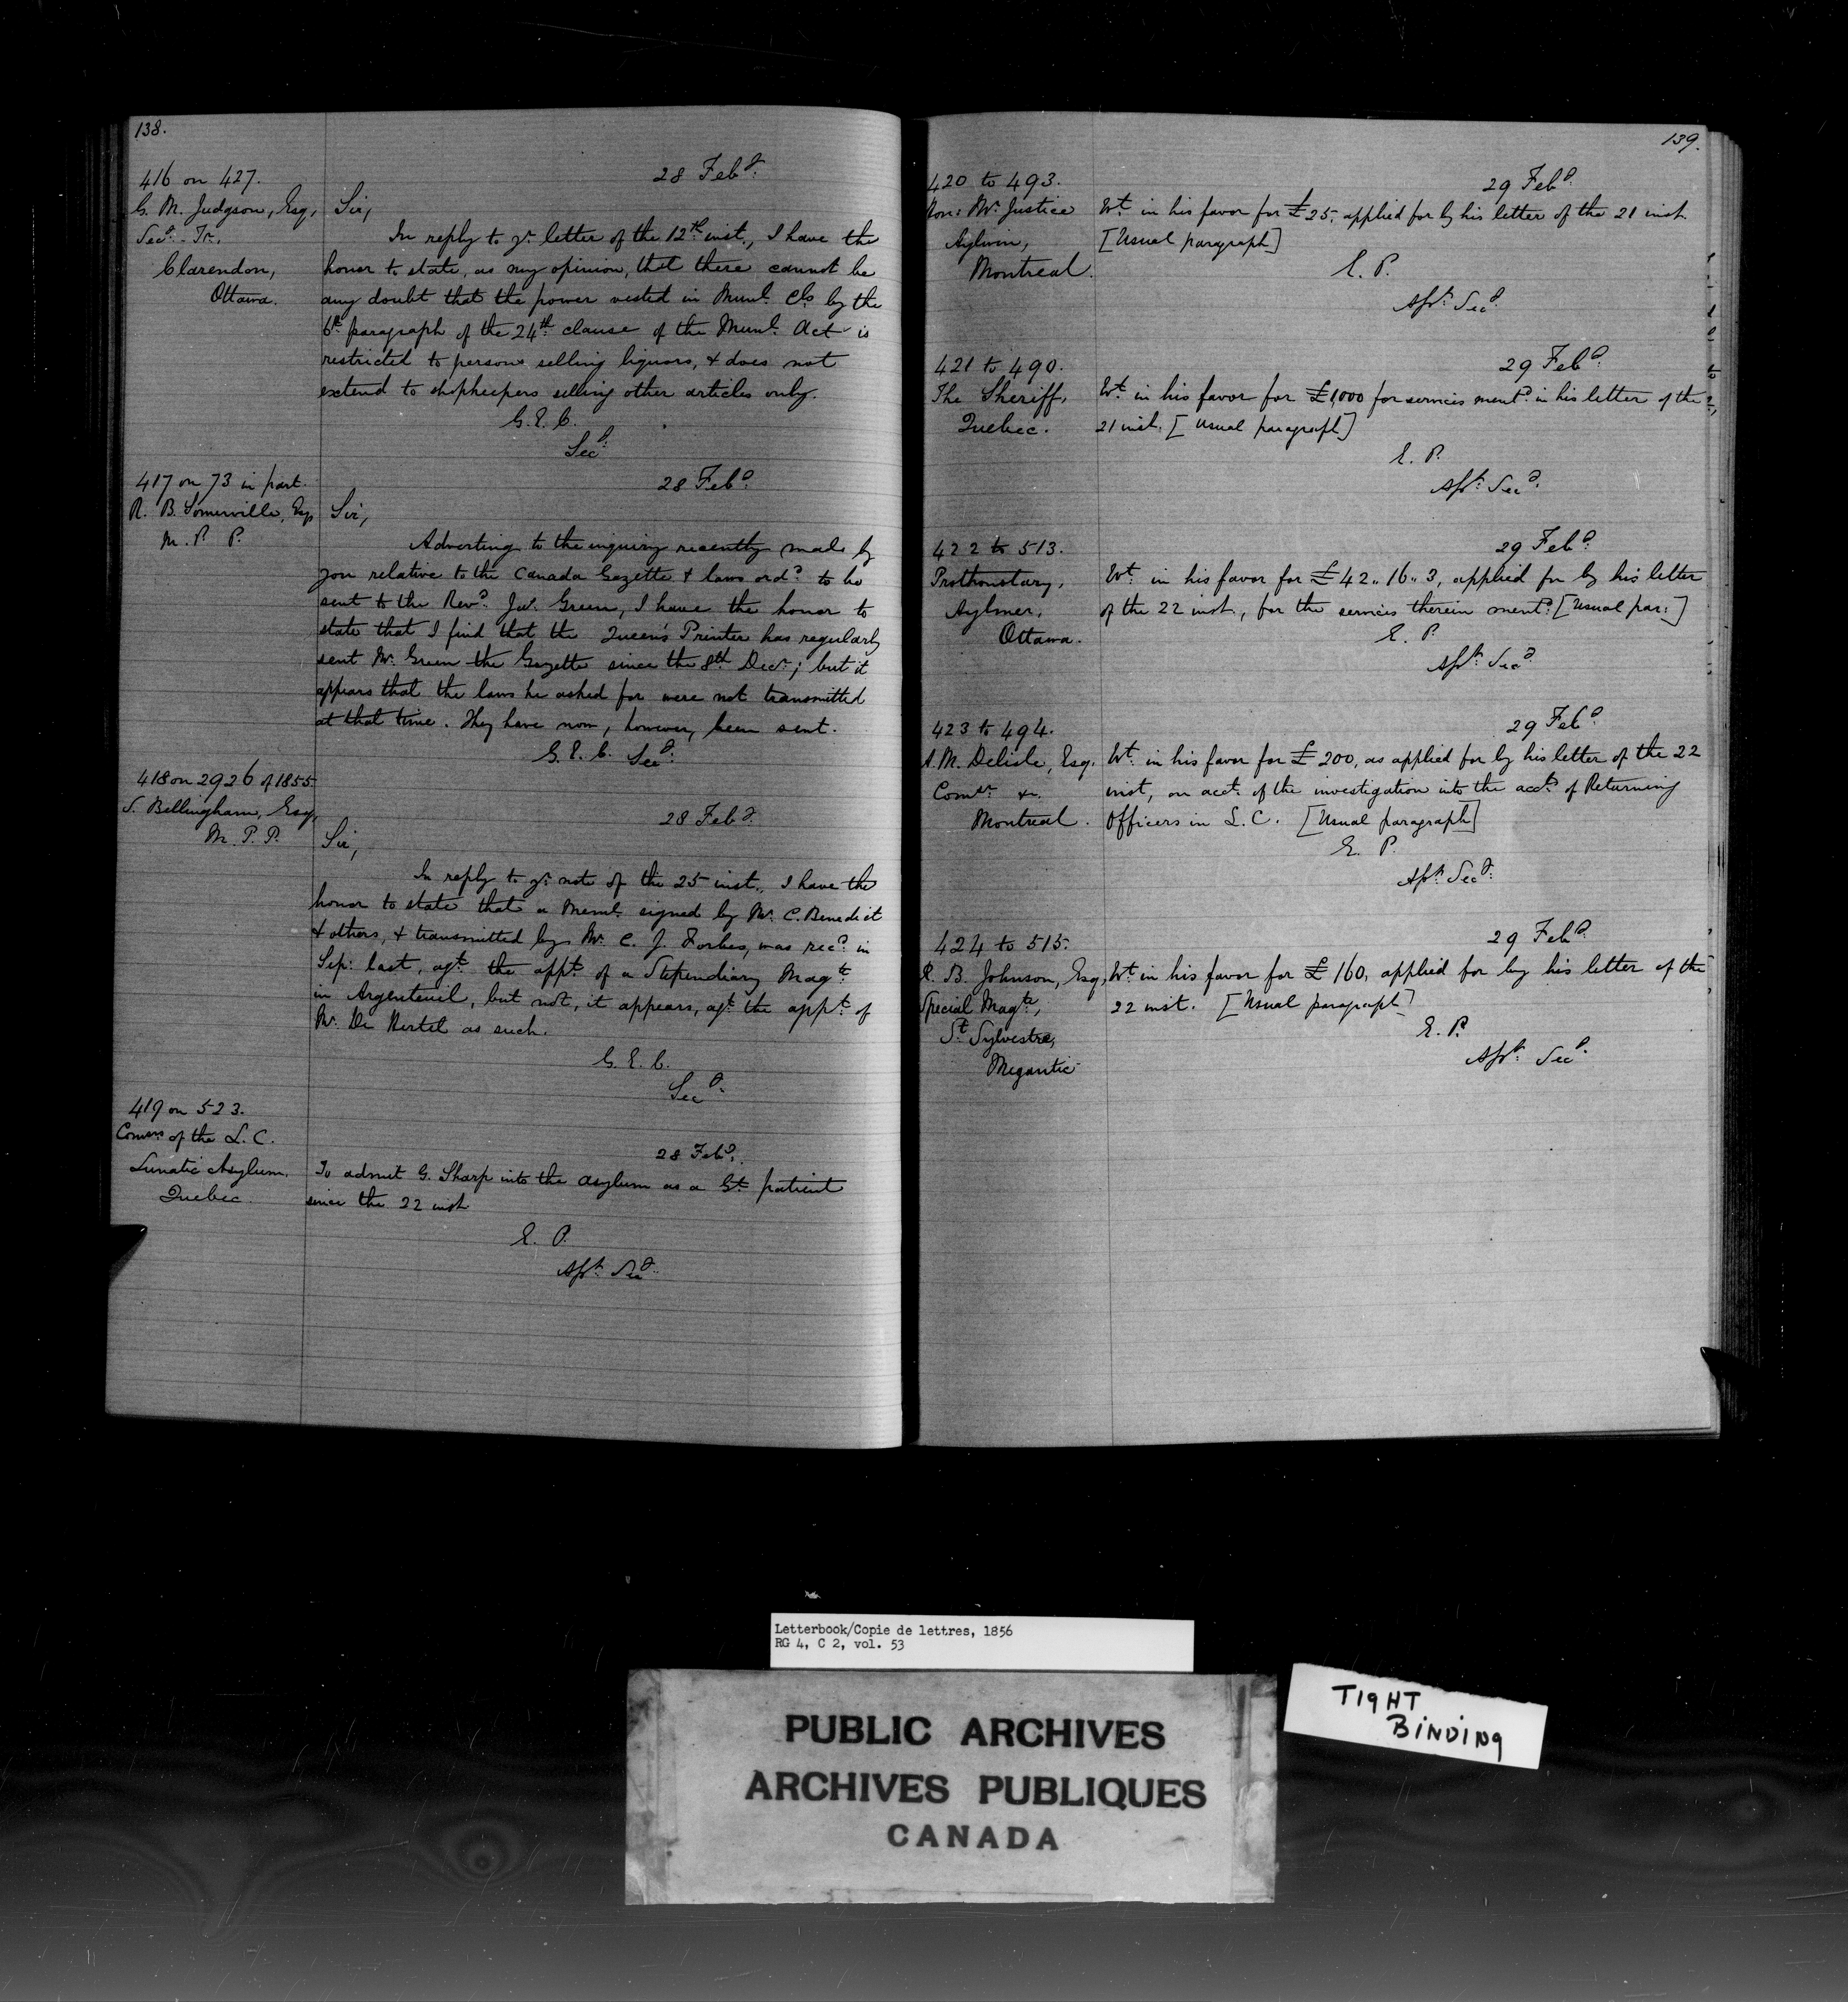 138.
416 on 427.
G. M. Judgson, Esq,
Secy. Tr.,
Clarendon,
Ottawa.
28 Feby.
Sir,
In reply to yr. letter of the 12th inst., I have the
honor to state, as my opinion, that there cannot be
any doubt that the power vested in Munl. Cls by the
6th paragraph of the 24th clause of the Munl. Act is
restricted to persons selling liquors, & does not
extend to shopkeepers selling other articles only.
G. E. C.
Secy.
417 on 73 in part.
R. B. Somerville, Esq
M. P. P.
28 Feby.
Sir,
Adverting to the inquiry recently made by
you relative to the Canada Gazette & laws ordd. to be
sent to the Revd. Jos. Green, I have the honor to
state that I find that the Queen's Printer has regularly
sent Mr. Green the Gazette since the 8th Decr.; but it
appears that the laws he asked for were not transmitted
at that time. They have now, however, been sent.
G. E. C. Secy.
418 on 2926 of 1855.
S. Bellingham, Esq,
M. P. P.
28 Feby.
Sir,
In reply to yr. note of the 25 inst., I have the
honor to state that a Meml. signed by Mr. C. Benedict
& others, & transmitted by Mr. C. J. Forbes, was recd. in
Sep: last, agt. the appt. of a Stipendiary Magte.
in Argenteuil, but not, it appears, agt. the appt. of
Mr. De Hertel as such.
G. E. C.
Secy.
419 on 523.
Comrs. of the L. C.
Lunatic Asylum,
Quebec.
28 Feby.
To admit G. Sharp into the Asylum as a Gt. patient
since the 22 inst
E. P.
Asst. Secy.
139.
420 to 493.
Hon: Mr. Justice
Aylwin,
Montreal.
29 Feby.
Wt. in his favor for £25, applied for by his letter of the 21 inst.
[Usual paragraph]
E. P.
Asst. Secy.
421 to 490.
The Sheriff,
Quebec.
29 Feby.
Wt. in his favor for £1,000 for services mentd. in his letter of the
21 inst. [Usual paragraph]
E. P.
Asst. Secy.
422 to 513.
Prothonotary,
Aylmer,
Ottawa.
29 Feby.
Wt. in his favor for £42,, 16,, 3, applied for by his letter
of the 22 inst., for the services therein mentd. [Usual par:]
E. P.
Asst. Secy.
423 to 494.
A. M. Delisle, Esq.
Comr. &c.
Montreal.
29 Feby.
Wt. in his favor for £200, as applied for by his letter of the 22
inst, on acct. of the investigation into the accts. of Returning
Officers in L. C. [Usual paragraph]
E. P.
Asst. Secy.
424 to 515.
R. B. Johnson, Esq,
Special Magte.,
St. Sylvestre,
Megantic
29 Feby.
Wt. in his favor for £160, applied for by his letter of the
22 inst. [Usual paragraph]
E. P.
Asst. Secy.
Letterbook/Copie de lettres, 1856
RG 4, C 2, vol. 53
PUBLIC ARCHIVES
ARCHIVES PUBLIQUES
CANADA
TIGHT
BINDING